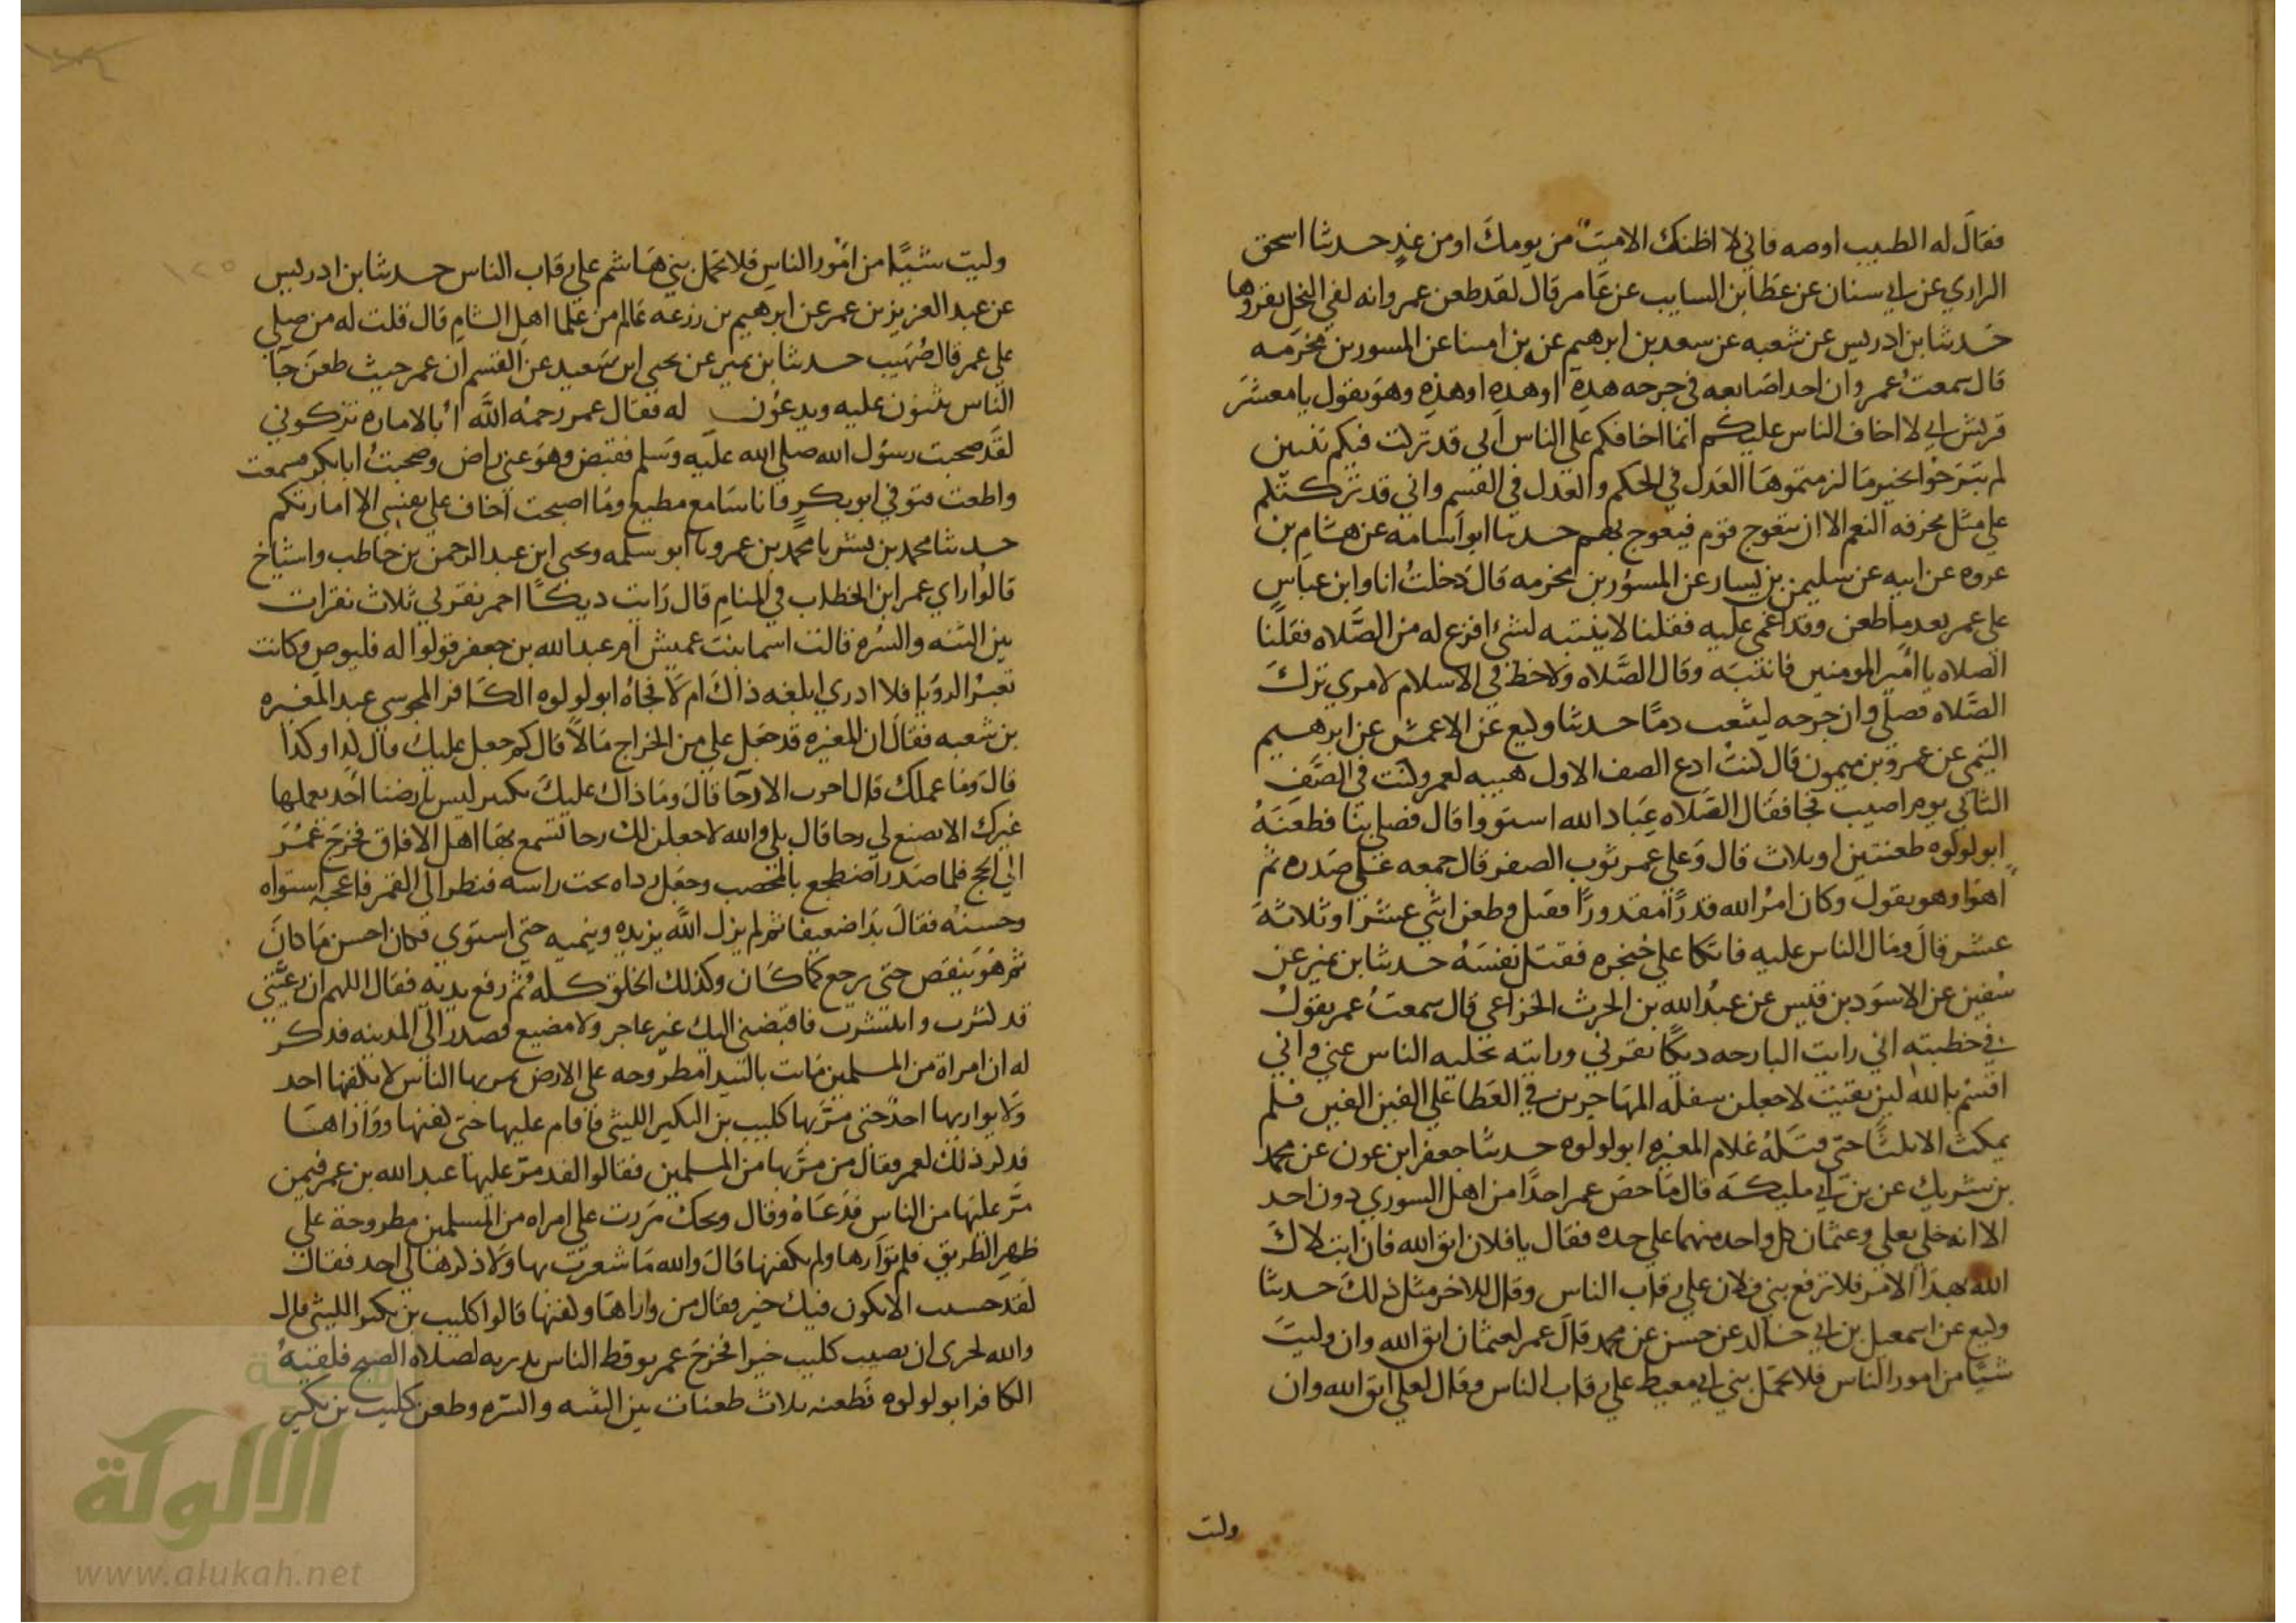 فقال له الطبيب اوصه فاني لا اظنك الاميت من يومك او من غد حدثنا اسحق
الرازي عن ابي سنان عن عطا بن السايب عن عامر قال لقد طعن عمر وانه لفي النحل يقروها
حدثنا بن ادريس عن شعبه عن سعد بن ابرهيم عن بن امسا عن المسور بن مخرمه
قال سمعت عمر وان احد اصابعه في جرحه هذه او هذه او هذه وهو يقول يا معشر
قريش اني لا اخاف الناس عليكم انما اخافكم على الناس اني قد تركت فيكم ثنتين
لم تبرحوا بخير ما لزمتموها العدل في الحكم والعدل في القسم واني قد تركتكم
على مثل مخرفه النعم الا ان يتعوج قوم فيعوج بهم حدثنا ابو اسامه عن هشام بن
عروه عن ابيه عن سليمن بن يسار عن المسور بن مخرمه قال دخلت انا وابن عباس
على عمر بعد ما طعن وقد اغمي عليه فقلنا لا ينتبه لشئ افزع له من الصلاه فقلنا
الصلاه يا امير المومنين فانتبه وقال الصلاه ولا حظ في الاسلام لامري ترك
الصلاه فصلى وان جرحه ليثعب دما حدثنا وكيع عن الاعمش عن ابرهيم
التيمي عن عمرو بن ميمون قال كنت ادع الصف الاول هيبه لعمر وكنت في الصف
الثاني يوم اصيب فجا فقال الصلاه عباد الله استووا قال فصلى بنا فطعنه
ابو لولوه طعنتين او ثلاث قال وعلى عمر ثوب اصفر قال جمعه على صدره ثم
اهوا وهو يقول وكان امر الله قدرا مقدورا فقتل وطعن اثني عشر او ثلاثة
عشر قال ومال الناس عليه فاتكا على خنجره فقتل نفسه حدثنا بن نمير عن
سفين عن الاسود بن قيس عن عبد الله بن الحرث الخزاعي قال سمعت عمر يقول
في خطبته اني رايت البارحه ديكا نقرني ورايته يجليه الناس عني واني
اقسم بالله لين بقيت لاجعلن سفله المهاجرين في العطا على الفين الفين فلم
يمكث الا ثلثا حتى قتله غلام المغيره ابو لولوه حدثنا جعفر ابن عون عن محمد
بن شريك عن بن ابي مليكه قال ما خص عمر احدا من اهل الشوري دون احد
الا انه خلى بعلي وعثمان كل واحد منهما على حده فقال يا فلان اتق الله فان ابتلاك
الله بهذا الامر فلا ترفع بني فلان على رقاب الناس وقال للاخر مثل ذلك حدثنا
وكيع عن اسمعيل بن ابي خالد عن حسن عن محمد قال قال عمر لعثمان اتق الله وان وليت
شيا من امور الناس فلا تحمل بني ابي معيط على رقاب الناس وقال لعلي اتق الله وان
ولت
وليت شيا من امور الناس فلا تحمل بني هاشم على رقاب الناس حدثنا بن ادريس
عن عبد العزيز بن عمر عن ابرهيم بن زرعه عالم من علما اهل الشام قال قلت له من صلى
على عمر قال صهيب حدثنا بن نمير عن يحيى ابن سعيد عن القسم ان عمر حيث طعن جا
الناس يثنون عليه ويدعون له فقال عمر رحمه الله ابالاماره تزكوني
لقد صحبت رسول الله صلى الله عليه وسلم فقبض وهو عني راض وصحبت ابا بكر فسمعت
واطعت فتوفي ابو بكر وانا سامع مطيع وما اصبحت اخاف على نفسي الا امارتكم
حدثنا محمد بن بشر نا محمد بن عمرو نا ابو سلمه ويحيى ابن عبد الرحمن بن حاطب واشياخ
قالوا راي عمر ابن الخطاب في المنام قال رايت ديكا احمر نقرني ثلاث نقرات
بين الثنه والسره قالت اسما بنت عميس ام عبد الله بن جعفر قولوا له فليوص وكانت
تعبر الرويا فلا ادري ابلغه ذاك ام لا فجاه ابو لولوه الكافر المجوسي عبد المغيره
بن شعبه فقال ان المغيره قد جعل علي من الخراج مالا قال كم جعل عليك قال كذا وكذا
قال وما عملك قال اجوب الارحا قال وما ذاك عليك بكثير ليس بارضنا احد يعملها
غيرك الا تصنع لي رحا قال بلى والله لاجعلن لك رحا تسمع بها اهل الافاق فخرج عمر
الى الحج فلما صدر اضطجع بالمحصب وجعل رداه تحت راسه فنظر الى القمر فاعجبه استواه
وحسنه فقال بدا ضعيفا ثم لم يزل الله يزيده وينميه حتى استوي فكان احسن ما كان
ثم هو ينقص حتى يرجع كما كان وكذلك الخلق كله ثم رفع يديه فقال اللهم ان رعيتي
قد كثرت وانتشرت فاقبضني اليك غير عاجز ولا مضيع فصدر الى المدينه فذكر
له ان امراة من المسلمين ماتت بالبيدا مطروحه على الارض يمر بها الناس لا يكفنها احد
ولا يواريها احد حتى مر بها كليب بن البكير الليثي فاقام عليها حتى كفنها وواراها
فذكر ذلك لعمر فقال من مر بها من المسلمين فقالوا لقد مر عليها عبد الله بن عمر فيمن
مر عليها من الناس فدعاه وقال ويحك مررت على امراه من المسلمين مطروحة على
ظهر الطريق فلم توارها ولم تكفنها قال والله ما شعرت بها ولا ذكرها لي احد فقال
لقد حسبت الا يكون فيك خير فقال من واراها وكفنها قالوا كليب بن بكير الليثي قال
والله لحرى ان يصيب كليب خيرا فخرج عمر يوقظ الناس بدرته لصلاه الصبح فلقيه
الكافر ابو لولوه فطعنه ثلاث طعنات بين الثنه والسره وطعن كليب بن بكير
الالوكة
www.alukah.net